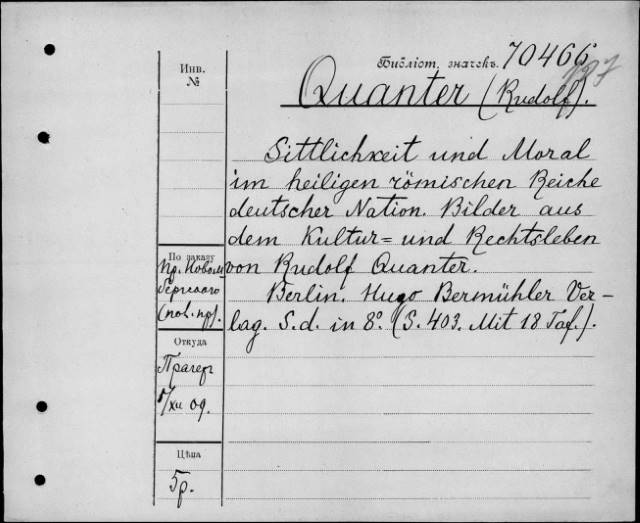 Библіот. значекъ. 70466
Quanter (Rudolf).
Инв.
№
Sittlichkeit und Moral
im heiligen römischen Reiche
deutscher Nation. Bilder aus
dem Kultur= und Rechtsleben
von Rudolf Quanter.
Berlin. Hugo Bermühler Ver-
lag. S.d. in 8º. (S. 403. Mit 18 Taf.).
По заказу
пр.
Откуда
Прагер
/xii 09.
Цѣна
5р.